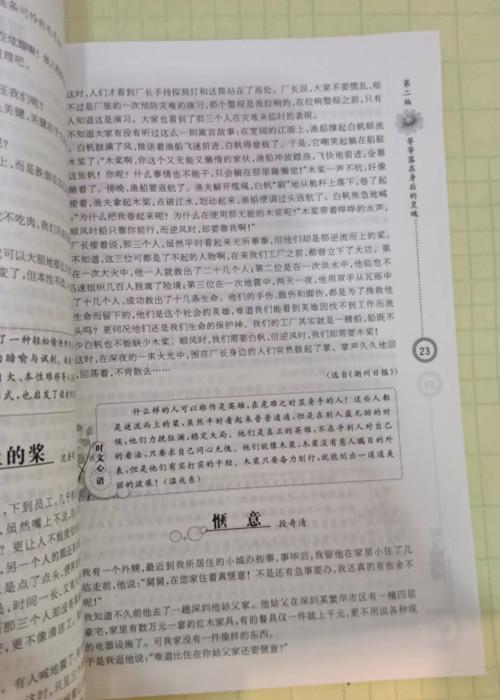 这时,人们才看到厂长手持探照灯和话筒站在了高处。厂长说,大家不要慌乱,刚
不过是厂里的一次预防灾难的演习,那个警报是我拉响的,在拉响警报之前,只有
人知道这是演习。大家也看到了那三个人在灾难来临时的表现。
不知道大家有没有听过这么一则寓言故事:在宽阔的江面上,渔船撑起白帆顺流
。白帆鼓满了风,推送着渔船飞速前进,白帆得意极了。于是,它嘲笑起躺在船舷
木桨了:"木桨啊,你这个又无能又懒惰的家伙,渔船冲波踏浪,飞快地前进,全靠
这张帆!你呢!什么事情也不能干,只会躺在那里睡懒觉!"木桨一声不吭,好像
睡着了。傍晚,渔船要返航了。渔夫解开缆绳,白帆"唰"地从桅杆上落下,卷了起
接着,渔夫拿起木桨,点破江水,划动起来,渔船便调过头返航了。白帆焦急地喊
:"为什么把我卷起来呢?为什么在使用那无能的木桨呢?"木桨带着哗哗的水声,
顺风时船只靠你前行,而逆风时,却要靠我啊!"
厂长接着说,那三个人,虽然平时看起来无所事事,但他们却是那逆流而上的桨。
不知道,这三位可都是了不起的人物啊,在来我们工厂之前,都曾立下了大功。第
在一次大火中,他一人就救出了二十几个人;第二位是在一次洪水中,他临危不
迅速组织几百人脱离了险境;第三位在一次地震中,两天一夜,他用双手从瓦砾中
了十几个人,成功救出了十几条生命。他们的手伤、眼伤和脚伤,都是为了挽救他
生命而留下的,他们是这个社会的英雄,难道我们能看到英雄因找不到工作而流
头吗?更何况他们还是我们生命的保护神。我们的工厂其实就是一艘船,船既不
白帆也不能缺少木桨。顺风时,我们需要白帆,但逆风时,我们却需要木桨!
这时,在深夜的一束火光中,围在厂长身边的人们突然鼓起了掌。掌声久久地回
,回荡着,不肯散去……
(选自《潮州日报》)
时文心语
什么样的人可以称作是英雄,在危难之时显身手的人!这些人都
是逆流而上的桨,虽然平时看起来普普通通,但是在别人最无助的时
候,他们力挽狂澜,稳定大局。他们是真正的英雄,不在乎别人对自己
的看法,只要求自己问心无愧。他们就像木桨,木桨没有惹人瞩目的外
表,但是他们有实打实的干劲。木桨只要奋力划行,就能划出一道道美
丽的波痕!(温兆东)
惬意 段奇清
我有一个外甥,最近到我所居住的小城办些事,事毕后,我留他在家里小住了几
临走前,他说:"舅舅,在您家住着真惬意!不是还有急事要办,我还真的有些舍不
呢!"
我知道不久前他去了一趟深圳他姑父家。他姑父在深圳某繁华市区有一幢四层
豪宅,家里有数万元一套的红木家具,有的餐具仅一件就上千元,更不用说各种现
的电器设施了。可我家没有一件像样的东西。
于是我逗他说:"难道比住在你姑父家还要惬意?"
第二编
等等落在身后的灵魂
23